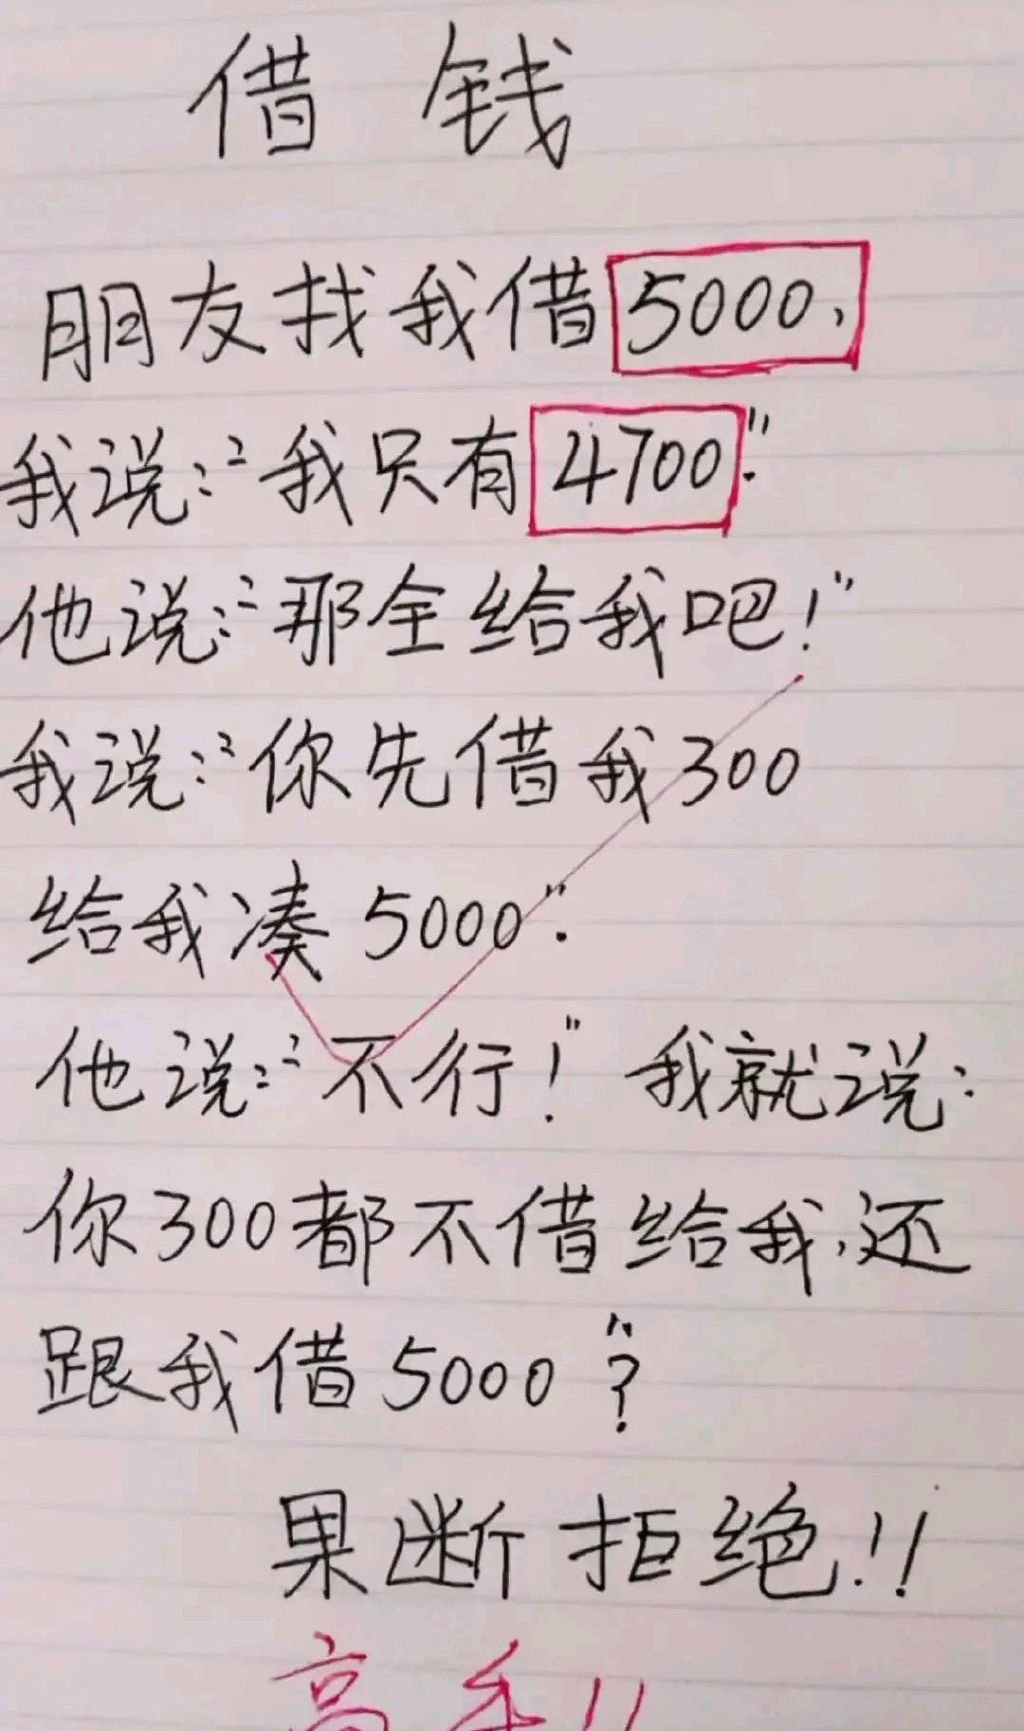 借 钱
朋友找我借5000,
我说:“我只有4700”.
他说:“那全给我吧!”
我说:“你先借我300
给我凑5000”.
他说:“不行!”我就说:
你300都不借给我,还
跟我借5000”?
果断拒绝!!
高手!!